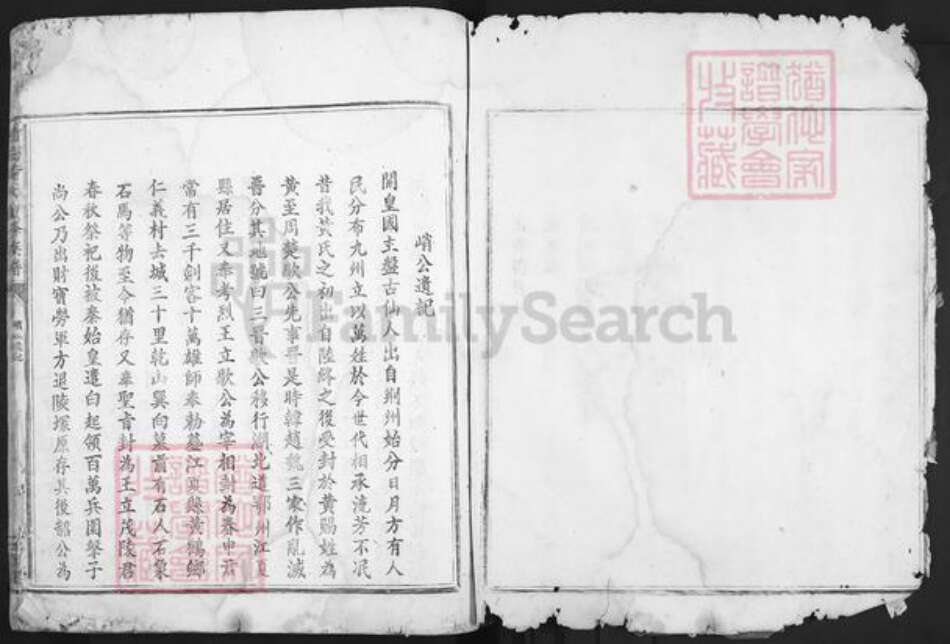 峭公遺記
開皇國主盤古仙人出自荆州始分日月方有人
民分布九州立以萬姓於今世代相承流芳不泯
昔我黄氏之初出自陸終之後受封於黄賜姓為
黄至周楚歇公先事晋是時韓趙魏三家作亂滅
晋分其地號曰三晋歇公移行湖北道鄂州江夏
縣居住又奉考烈王立歇公為宰相封為春申君
常有三千劍客十萬雄師奉勅墓江夏縣黄鶴鄉
仁義村去城三十里乾山巽向墓前有石人石象
石馬等物至今猶存又奉聖旨封為王立茂陵君
春秋祭祀後被秦始皇遣白起領百萬兵圍孥子
尚公乃出財寶勞軍方退陵塚原存其後韶公為
FamilySearch
譜學會
收藏